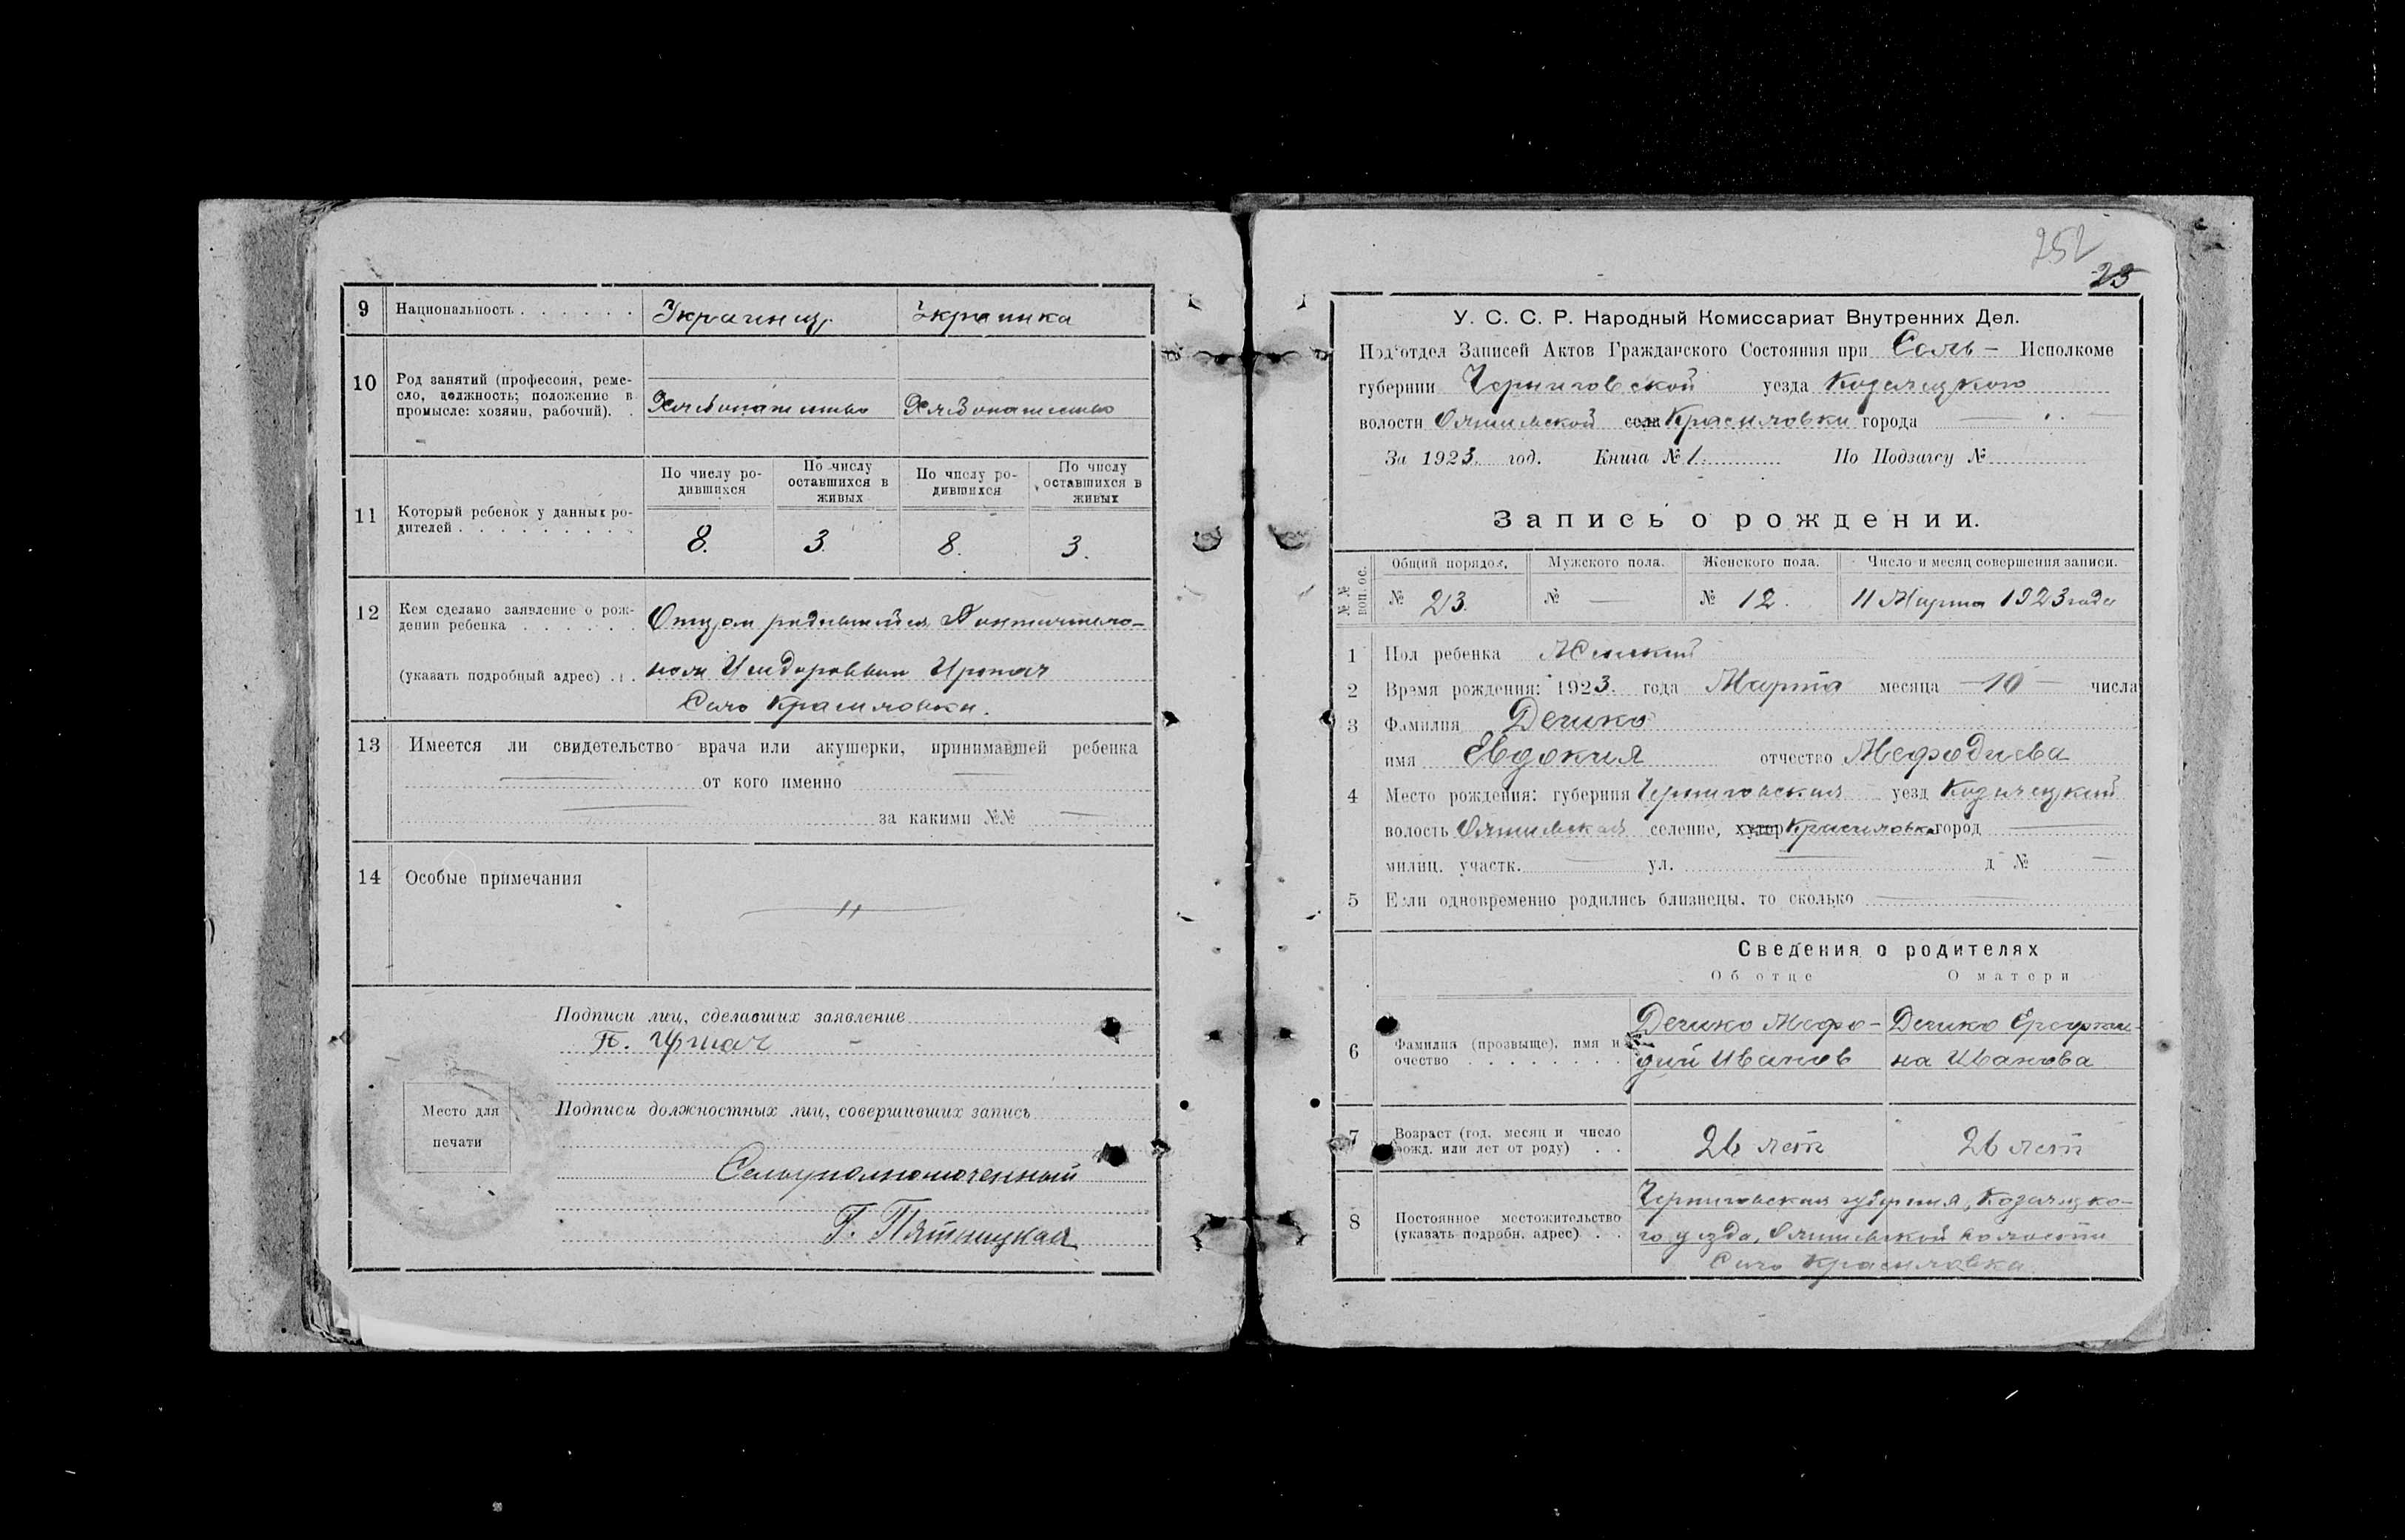 9 Национальность . . . . . . Украинец. Украинка
10 Род занятий (профессия, реме-
сло, должность; положение в
промысле: хозяин, рабочий). . Хлебопашество Хлебопашество
По числу ро-
дившихся По числу
оставшихся в
живых По числу ро-
дившихся По числу
оставшихся в
живых
11 Который ребенок у данных ро-
дителей . . . . . . . . . 8. 3. 8. 3.
12 Кем сделано заявление о рож-
дении ребенка . . . . . . Отцом родившейся
(указать подробный адрес) . . .
Село Красиловки.
13 Имеется ли свидетельство врача или акушерки, принимавшей ребенка
от кого именно
за какими №№
14 Особые примечания
Подписи лиц, сделавших заявление
Место для
печати
Подписи должностных лиц, совершивших запись
Сельуполномоченный
Г. Пятницкая
252
23
У. С. С. Р. Народный Комиссариат Внутренних Дел.
Под'отдел Записей Актов Гражданского Состояния при Сель – Исполкоме
губернии Черниговской уезда Козелецкого
волости Олишевской села Красиловки города —
За 1923. год. Книга № 1. По Подзагсу №
Запись о рождении.
№№ воп.ос. Общий порядок. Мужского пола. Женского пола. Число и месяц совершения записи.
№ 23. № — № 12. 11 Марта 1923 года
1 Пол ребенка Женский
2 Время рождения: 1923. года Марта месяца — 10 — числа
3 Фамилия Дечко
имя Евдокия отчество Мефодиева
4 Место рождения: губерния Черниговская уезд Козелецкий
волость Олишевская селение, хутор Красиловка город —
милиц. участк. — ул. — д № —
5 Если одновременно родились близнецы, то сколько —
Сведения о родителях
Об отце О матери
6 Фамилия (прозвище), имя и
очество . . . . . . . Дечко Мефо-
дий Иванов Дечко
на Иванова
7 Возраст (год. месяц и число
рожд. или лет от роду) . . 26 лет 26 лет
8 Постоянное местожительство
(указать подробн. адрес) . . Черниговская губерния, Козелецко-
го уезда, Олишевской волости
Село Красиловка